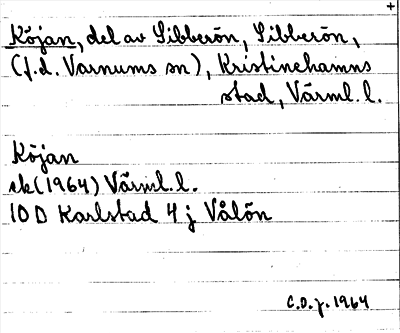 +
Köjan, del av Sibberön, Sibberön,
(f.d. Varnums sn), Kristinehamns
stad, Värml. l.
Köjan
ek (1964) Värml. l.
10 D Karlstad 4 j Vålön
C.O.J. 1964